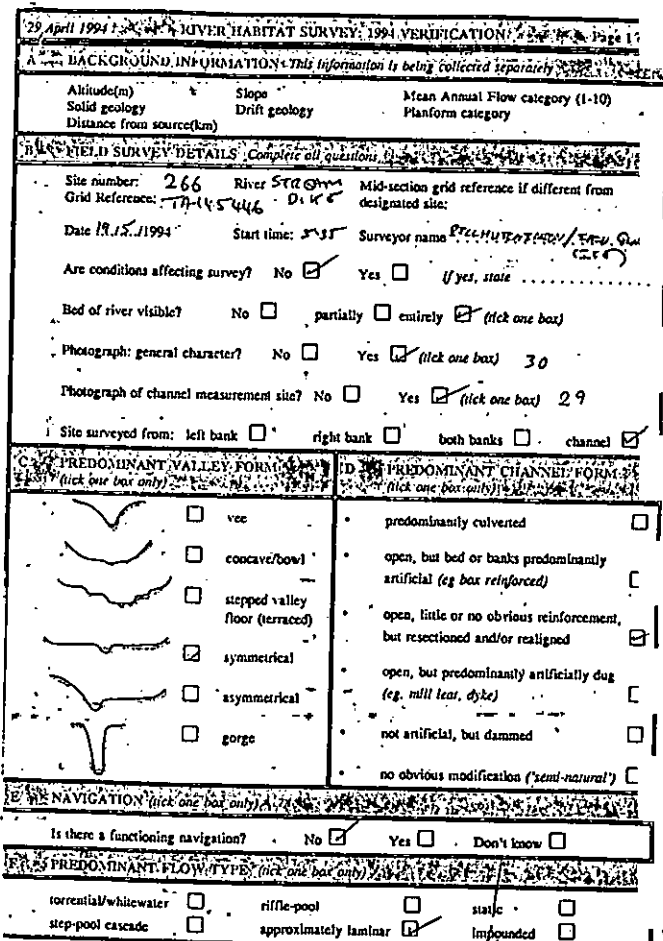 29 April 1994 RIVER HABITAT SURVEY: 1994 VERIFICATION Page 1
A BACKGROUND INFORMATION This information is being collected separately
Altitude(m) Slope Mean Annual Flow category (1-10)
Solid geology Drift geology Planform category
Distance from source(km)
B FIELD SURVEY DETAILS Complete all questions
Site number: 266 River STREAM Mid-section grid reference if different from
Grid Reference: TA145446 DIKE designated site:
Date 19/5/1994 Start time: Surveyor name
Are conditions affecting survey? No Yes if yes, state ............
Bed of river visible? No partially entirely (tick one box)
Photograph: general character? No Yes (tick one box) 30
Photograph of channel measurement site? No Yes (tick one box) 29
Site surveyed from: left bank right bank both banks channel
C PREDOMINANT VALLEY FORM
(tick one box only)
vee
concave/bowl
stepped valley
floor (terraced)
symmetrical
asymmetrical
gorge
D PREDOMINANT CHANNEL FORM
(tick one box only)
predominantly culverted
open, but bed or banks predominantly
artificial (eg box reinforced)
open, little or no obvious reinforcement,
but resectioned and/or realigned
open, but predominantly artificially dug
(eg. mill leat, dyke)
not artificial, but dammed
no obvious modification ('semi-natural')
E NAVIGATION (tick one box only)
Is there a functioning navigation? No Yes Don't know
F PREDOMINANT FLOW TYPE (tick one box only)
torrential/whitewater riffle-pool static
step-pool cascade approximately laminar impounded